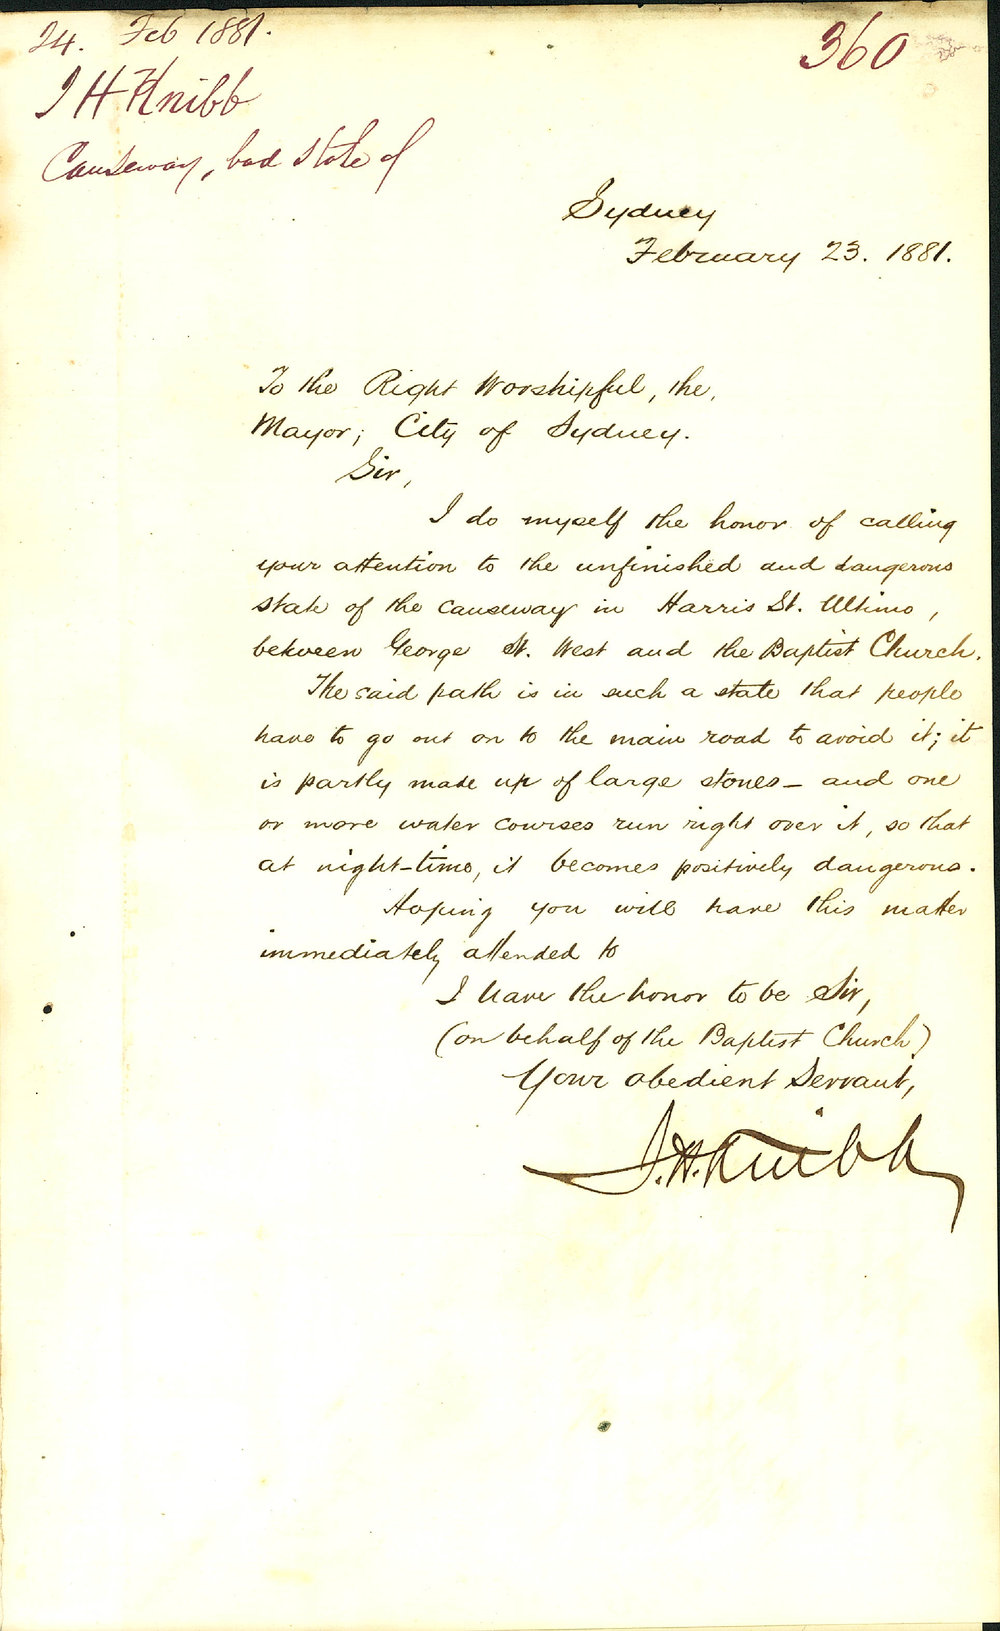 24. Feb 1881.
360
J H Knibb
Causeway, bad state of
Sydney
February 23. 1881.
To the Right Worshipful, the,
Mayor; City of Sydney.
Sir,
I do myself the honor of calling
your attention to the unfinished and dangerous
state of the causeway in Harris St. Ultimo,
between George St. West and the Baptist Church.
The said path is in such a state that people
have to go out on to the main road to avoid it; it
is partly made up of large stones - and one
or more water courses run right over it, so that
at night-time, it becomes positively dangerous.
Hoping you will have this matter
immediately attended to
I have the honor to be Sir,
(on behalf of the Baptist Church)
Your obedient Servant,
J. H. Knibb